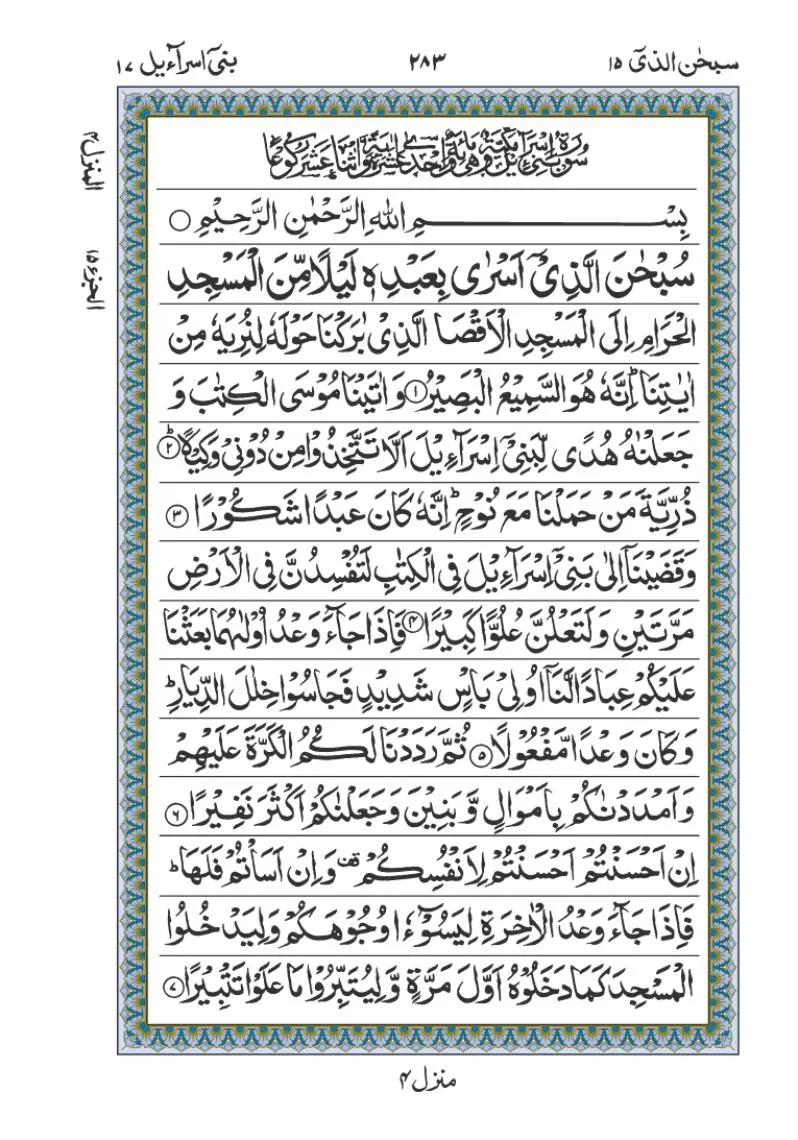 سبحٰن الذیۤ ۱۵
۲۸۳
بنیۤ اسرآءیل ۱۷
المنزل ۴
الجزء ۱۵
سورة بنی اسراءیل مکیة وهی مایة واحدی عشرة اٰیة واثنا عشر رکوعا
بِسْمِ اللّٰهِ الرَّحْمٰنِ الرَّحِیْمِ ○
سُبْحٰنَ الَّذِیْۤ اَسْرٰی بِعَبْدِهٖ لَیْلًا مِّنَ الْمَسْجِدِ
الْحَرَامِ اِلَی الْمَسْجِدِ الْاَقْصَا الَّذِیْ بٰرَكْنَا حَوْلَهٗ لِنُرِیَهٗ مِنْ
اٰیٰتِنَا ؕ اِنَّهٗ هُوَ السَّمِیْعُ الْبَصِیْرُ ۱ وَ اٰتَیْنَا مُوْسَی الْكِتٰبَ وَ
جَعَلْنٰهُ هُدًی لِّبَنِیْۤ اِسْرَآءِیْلَ اَلَّا تَتَّخِذُوْا مِنْ دُوْنِیْ وَكِیْلًا ؕ ۲
ذُرِّیَّةَ مَنْ حَمَلْنَا مَعَ نُوْحٍ ؕ اِنَّهٗ كَانَ عَبْدًا شَكُوْرًا ۳
وَ قَضَیْنَاۤ اِلٰی بَنِیْۤ اِسْرَآءِیْلَ فِی الْكِتٰبِ لَتُفْسِدُنَّ فِی الْاَرْضِ
مَرَّتَیْنِ وَ لَتَعْلُنَّ عُلُوًّا كَبِیْرًا ۴ فَاِذَا جَآءَ وَعْدُ اُوْلٰىهُمَا بَعَثْنَا
عَلَیْكُمْ عِبَادًا لَّنَاۤ اُولِیْ بَاْسٍ شَدِیْدٍ فَجَاسُوْا خِلٰلَ الدِّیَارِ ؕ
وَ كَانَ وَعْدًا مَّفْعُوْلًا ۵ ثُمَّ رَدَدْنَا لَكُمُ الْكَرَّةَ عَلَیْهِمْ
وَ اَمْدَدْنٰكُمْ بِاَمْوَالٍ وَّ بَنِیْنَ وَ جَعَلْنٰكُمْ اَكْثَرَ نَفِیْرًا ۶
اِنْ اَحْسَنْتُمْ اَحْسَنْتُمْ لِاَنْفُسِكُمْ ۫ وَ اِنْ اَسَاْتُمْ فَلَهَا ؕ
فَاِذَا جَآءَ وَعْدُ الْاٰخِرَةِ لِیَسُوْٓءٗا وُجُوْهَكُمْ وَ لِیَدْخُلُوا
الْمَسْجِدَ كَمَا دَخَلُوْهُ اَوَّلَ مَرَّةٍ وَّ لِیُتَبِّرُوْا مَا عَلَوْا تَتْبِیْرًا ۷
منزل ۴